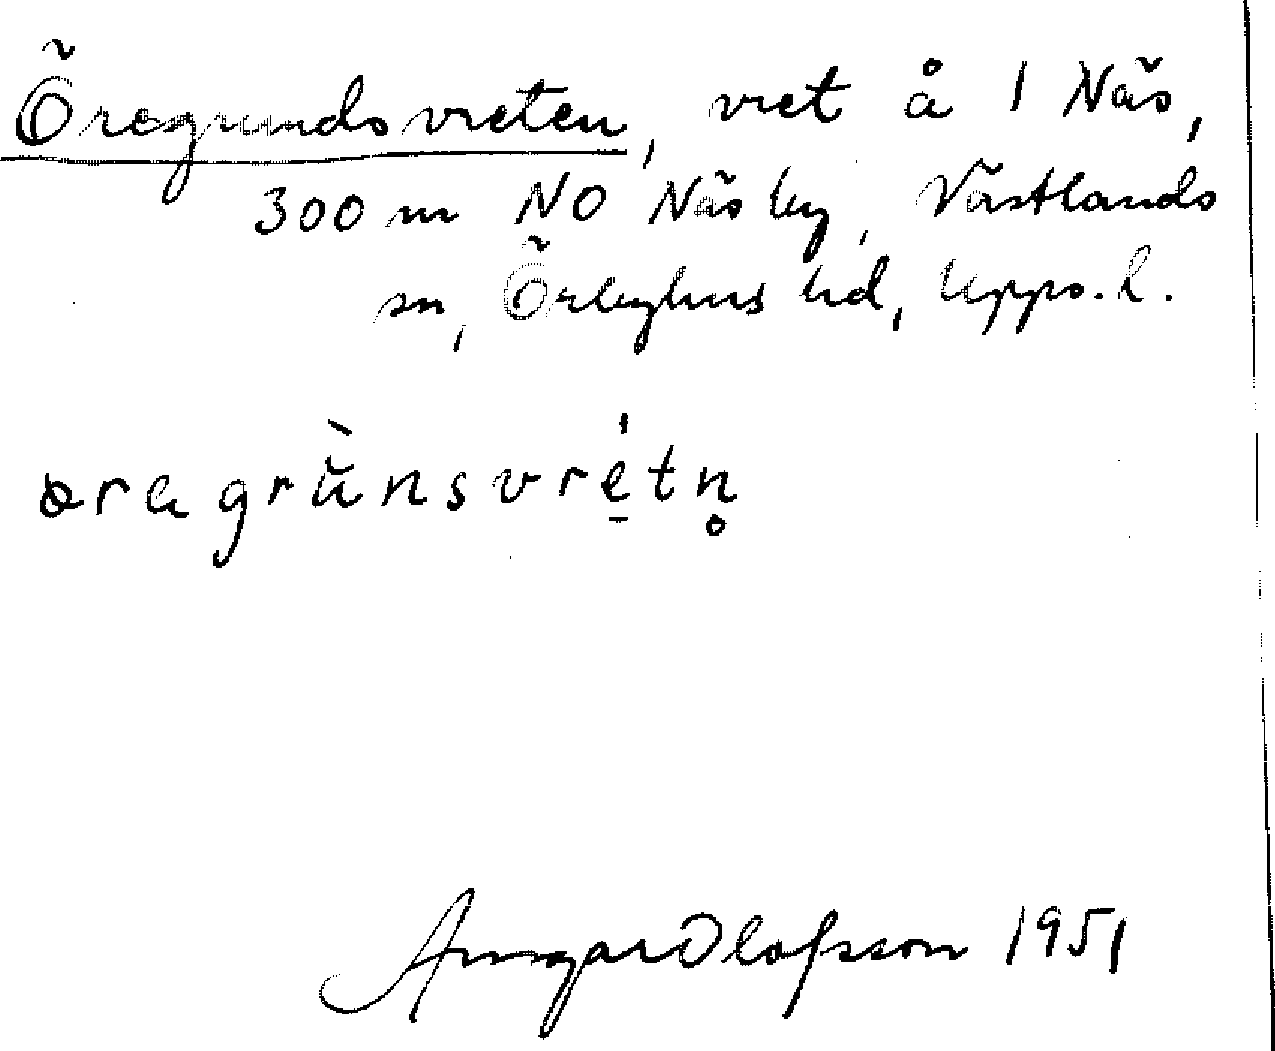 Öregrundsvreten, vret å 1 Näs,
300 m NO Näs by, Västlands
sn, Örbyhus hd, Upps. l.
öragrŭ̀nsvré̱tn̥
Ansgar Olofsson 1951